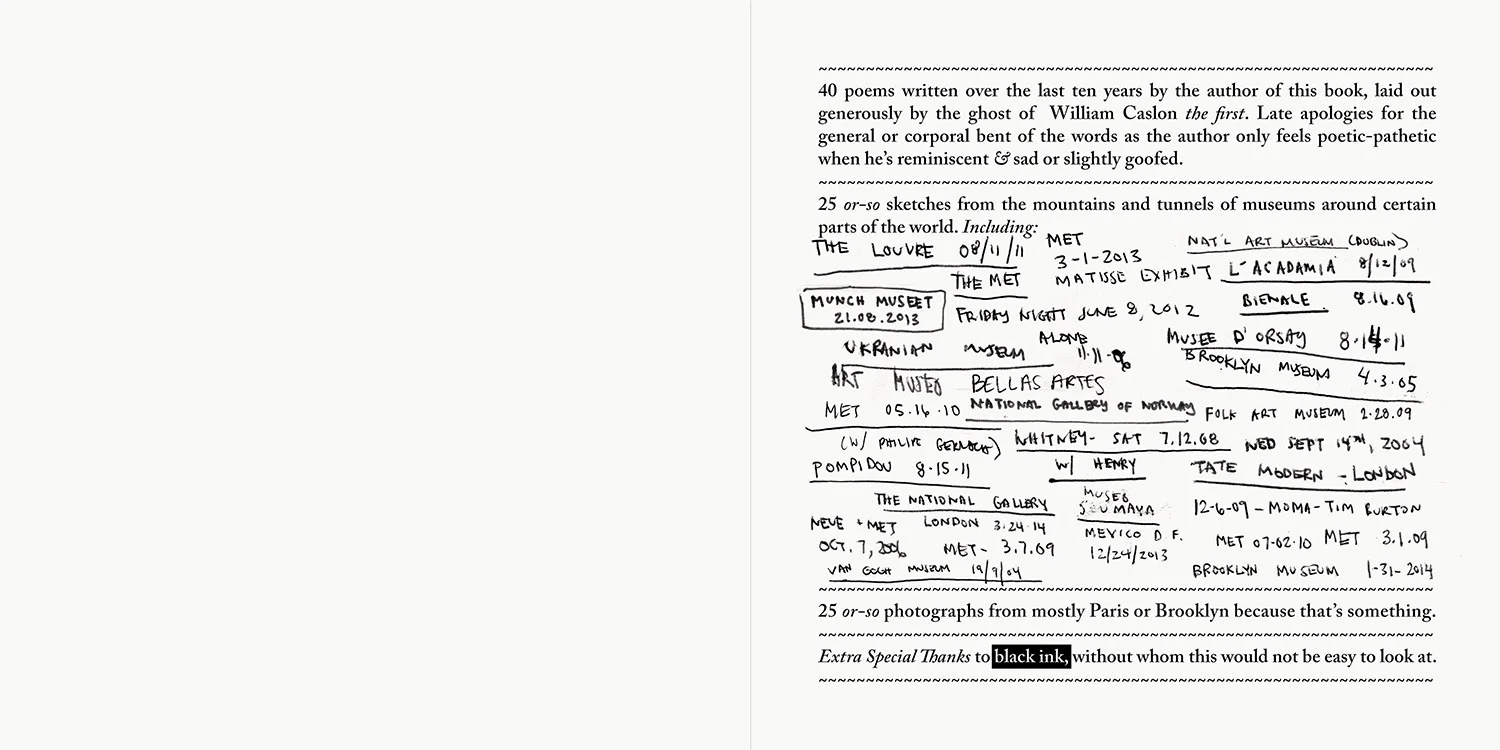 ~~~~~~~~~~~~~~~~~~~~~~~~~~~~~~~~~~~~~~~~~~~~~~~~~~
40 poems written over the last ten years by the author of this book, laid out
generously by the ghost of William Caslon the first. Late apologies for the
general or corporal bent of the words as the author only feels poetic-pathetic
when he's reminiscent & sad or slightly goofed.
~~~~~~~~~~~~~~~~~~~~~~~~~~~~~~~~~~~~~~~~~~~~~~~~~~
25 or-so sketches from the mountains and tunnels of museums around certain
parts of the world. Including:
THE LOUVRE 08/11/11
MET
3-1-2013
MATISSE EXHIBIT
NAT'L ART MUSEUM (DUBLIN)
L'ACADAMIA 8/12/09
THE MET
FRIDAY NIGHT JUNE 8, 2012
ALONE
MUNCH MUSEET
21.08.2013
BIENALE 8.16.09
UKRANIAN MUSEUM 11.11.06
MUSEE D'ORSAY 8.14.11
BROOKLYN MUSEUM 4.3.05
ART MUSEO BELLAS ARTES
MET 05.16.10
NATIONAL GALLERY OF NORWAY
FOLK ART MUSEUM 2.28.09
(W/ PHILIP GERLACH)
WHITNEY- SAT 7.12.08
W/ HENRY
WED SEPT 14TH, 2004
POMPIDOU 8.15.11
TATE MODERN - LONDON
THE NATIONAL GALLERY
LONDON 3.24.14
MUSEO
SOUMAYA
MEXICO D.F.
12/24/2013
12-6-09 - MOMA - TIM BURTON
NEUE + MET
OCT. 7, 2006
MET- 3.7.09
MET 07.02.10
MET 3.1.09
VAN GOGH MUSEUM 19/9/04
BROOKLYN MUSEUM 1-31-2014
~~~~~~~~~~~~~~~~~~~~~~~~~~~~~~~~~~~~~~~~~~~~~~~~~~
25 or-so photographs from mostly Paris or Brooklyn because that's something.
~~~~~~~~~~~~~~~~~~~~~~~~~~~~~~~~~~~~~~~~~~~~~~~~~~
Extra Special Thanks to black ink, without whom this would not be easy to look at.
~~~~~~~~~~~~~~~~~~~~~~~~~~~~~~~~~~~~~~~~~~~~~~~~~~